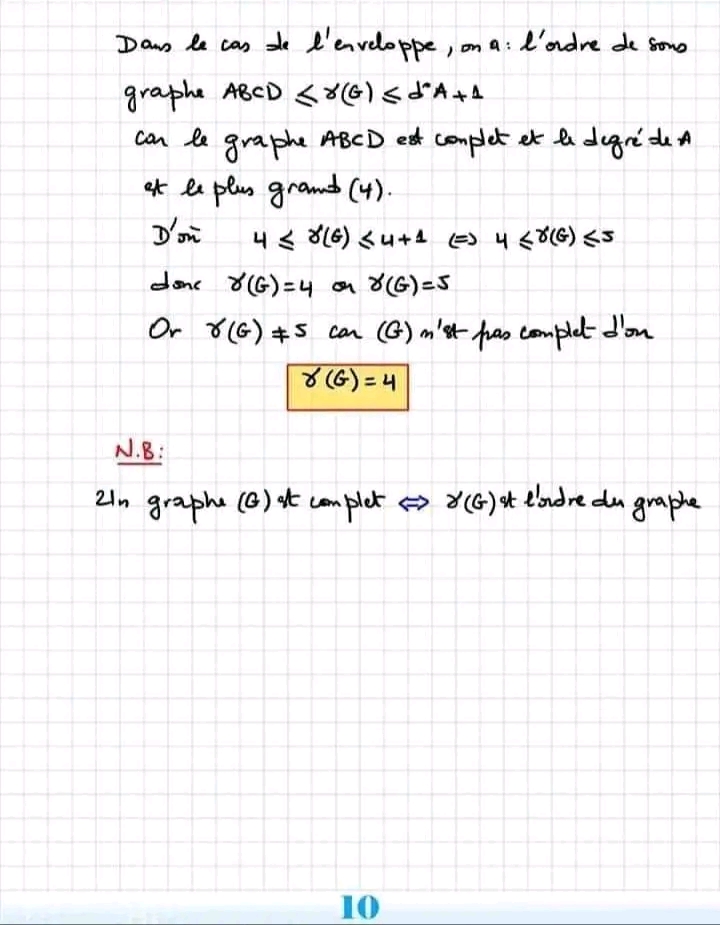 Dans le cas de l'enveloppe, on a : l'ordre de sous
graphe ABCD ⩽ γ(G) ⩽ d°A + 1
car le graphe ABCD est complet et le degré de A
est le plus grand (4).
D'où 4 ⩽ γ(G) ⩽ 4+1 ⇔ 4 ⩽ γ(G) ⩽ 5
donc γ(G) = 4 ou γ(G) = 5
Or γ(G) ≠ 5 car (G) n'est pas complet d'où
γ(G) = 4
N.B:
Un graphe (G) est complet ⇔ γ(G) est l'ordre du graphe
10